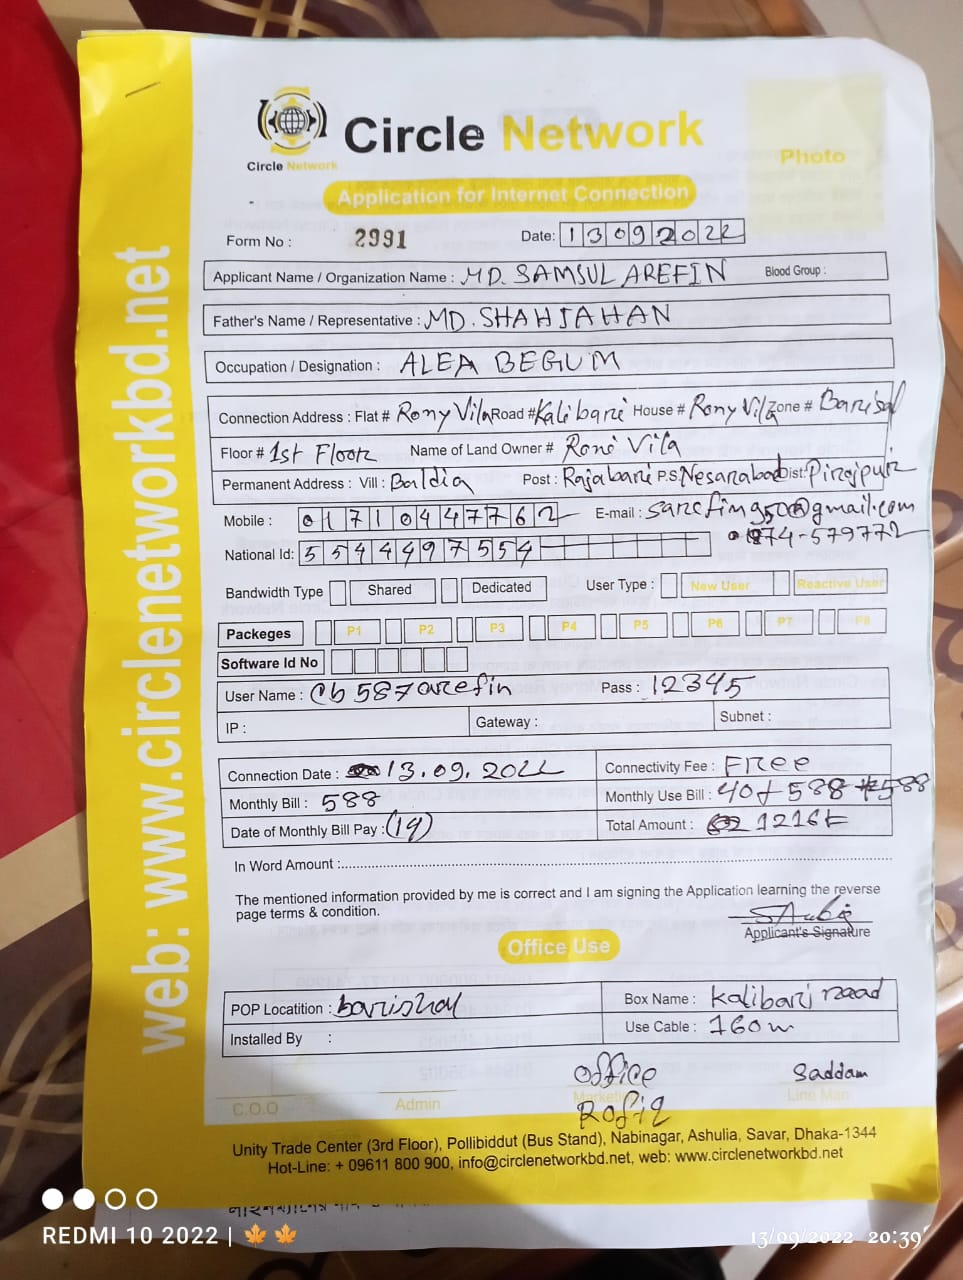 Circle Network
Circle Network
Photo
Application for Internet Connection
Form No : 2991 Date: 13092022
Applicant Name / Organization Name : MD. SAMSUL AREFIN Blood Group :
Father's Name / Representative : MD. SHAHJAHAN
Occupation / Designation : ALEA BEGUM
Connection Address : Flat # Rony Vila Road # Kalibari House # Rony Vila Zone # Barisal
Floor # 1st Floor Name of Land Owner # Roni Vila
Permanent Address : Vill : Baldia Post : Rajabari P.S: Nesarabad Dist: Pirojpur
Mobile : 01710447762 E-mail : sarefin950@gmail.com
National Id: 5544497554
Bandwidth Type Shared Dedicated User Type : New User Reactive User
Packeges P1 P2 P3 P4 P5 P6 P7 P8
Software Id No
User Name : Cb587arefin Pass : 12345
IP : Gateway : Subnet :
Connection Date : 13.09.2022 Connectivity Fee : Free
Monthly Bill : 588 Monthly Use Bill : 40+588+588
Date of Monthly Bill Pay : (19) Total Amount : 1216
In Word Amount :
The mentioned information provided by me is correct and I am signing the Application learning the reverse
page terms & condition.
Applicant's Signature
Office Use
POP Locatition : barishal Box Name : Kalibari road
Installed By : Use Cable : 160m
Office Saddam
C.O.O Admin Line Man
Rafiq
Unity Trade Center (3rd Floor), Pollibiddut (Bus Stand), Nabinagar, Ashulia, Savar, Dhaka-1344
Hot-Line: + 09611 800 900, info@circlenetworkbd.net, web: www.circlenetworkbd.net
web: www.circlenetworkbd.net
REDMI 10 2022 |
13/09/2022 20:39